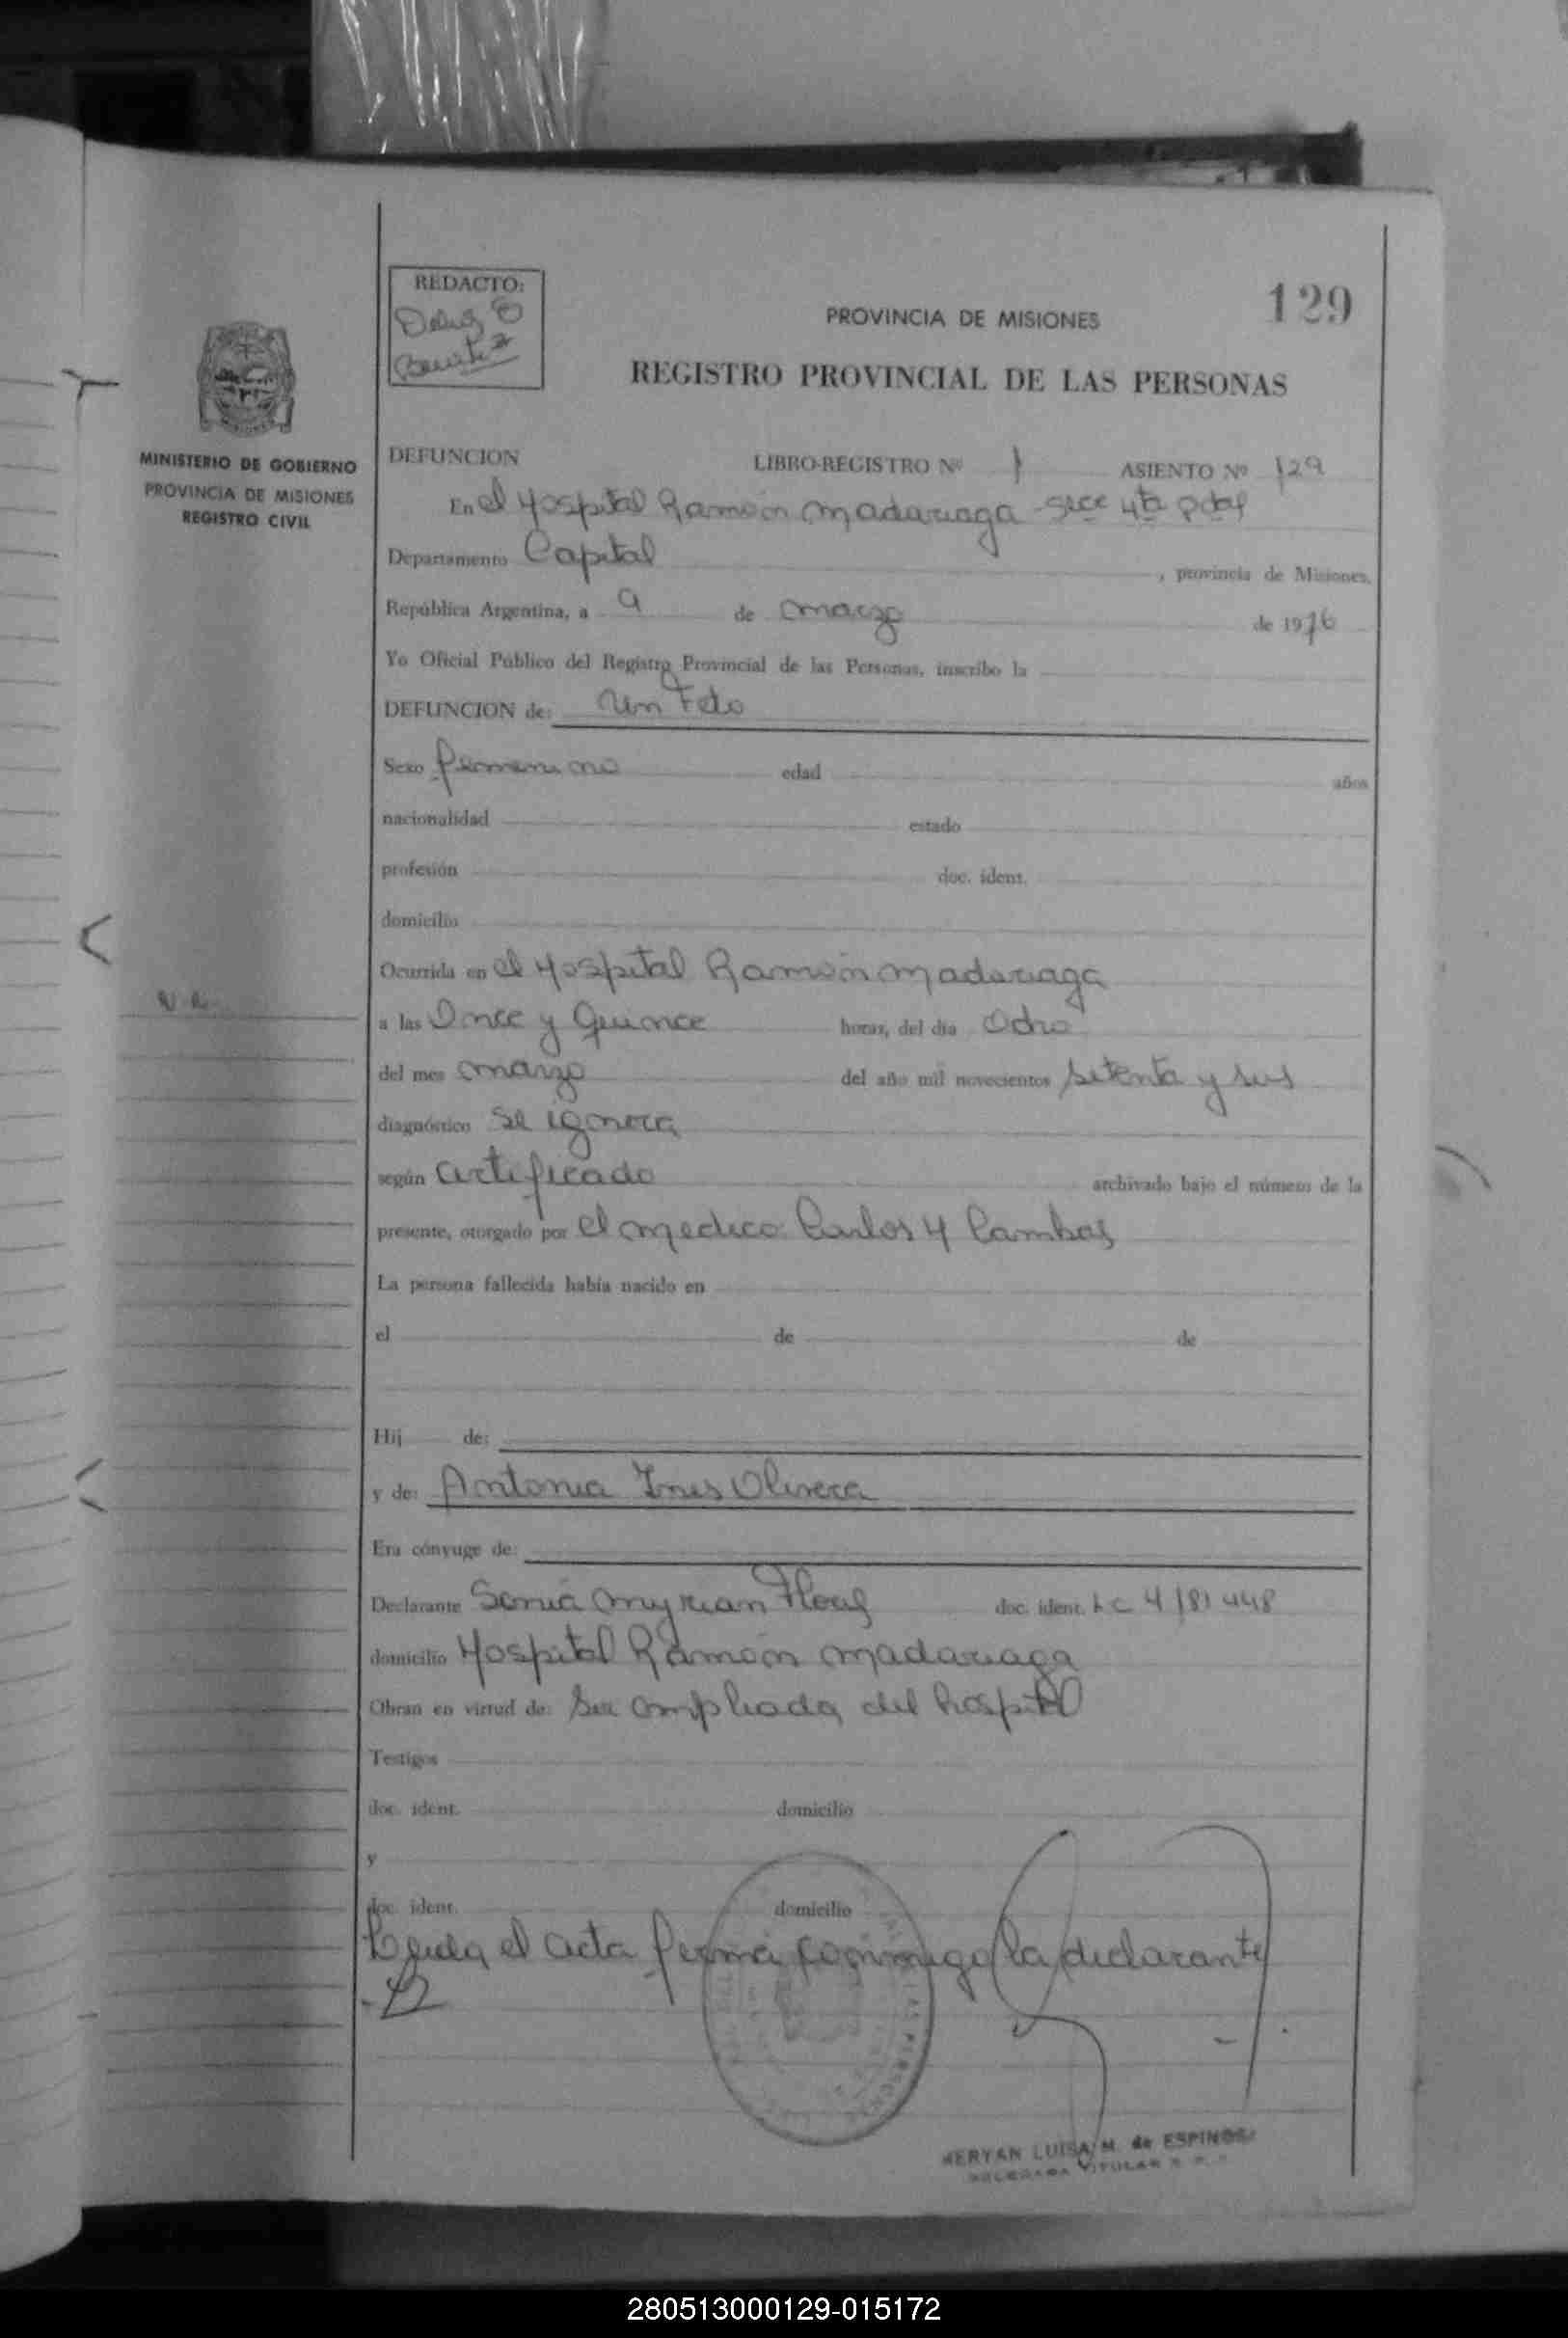 129
REDACTO:
PROVINCIA DE MISIONES
REGISTRO PROVINCIAL DE LAS PERSONAS
MINISTERIO DE GOBIERNO
PROVINCIA DE MISIONES
REGISTRO CIVIL
DEFUNCION LIBRO-REGISTRO Nº 1 ASIENTO Nº 129
En el Hospital Ramón Madariaga Secc 4ta
Departamento Capital, provincia de Misiones,
República Argentina, a 9 de marzo de 1976
Yo Oficial Público del Registro Provincial de las Personas, inscribo la
DEFUNCION de: Un Feto
Sexo femenino edad años
nacionalidad estado
profesión doc. ident.
domicilio
Ocurrida en el Hospital Ramón Madariaga
a las Once y Quince horas, del día Ocho
del mes marzo del año mil novecientos setenta y seis
diagnóstico se ignora
según certificado archivado bajo el número de la
presente, otorgado por el medico Carlos H Cambas
La persona fallecida había nacido en
el de de
Hij de:
y de: Antonia Ines Olivera
Era cónyuge de:
Declarante Sonia Myrian Flores doc. ident. LC 4181448
domicilio Hospital Ramón Madariaga
Obran en virtud de: Ser empleada del hospital
Testigos
doc. ident. domicilio
y
doc. ident. domicilio
Leida el acta firma conmigo la declarante
MERYAN LUISA M. de ESPINOSA
DELEGADA TITULAR
280513000129-015172